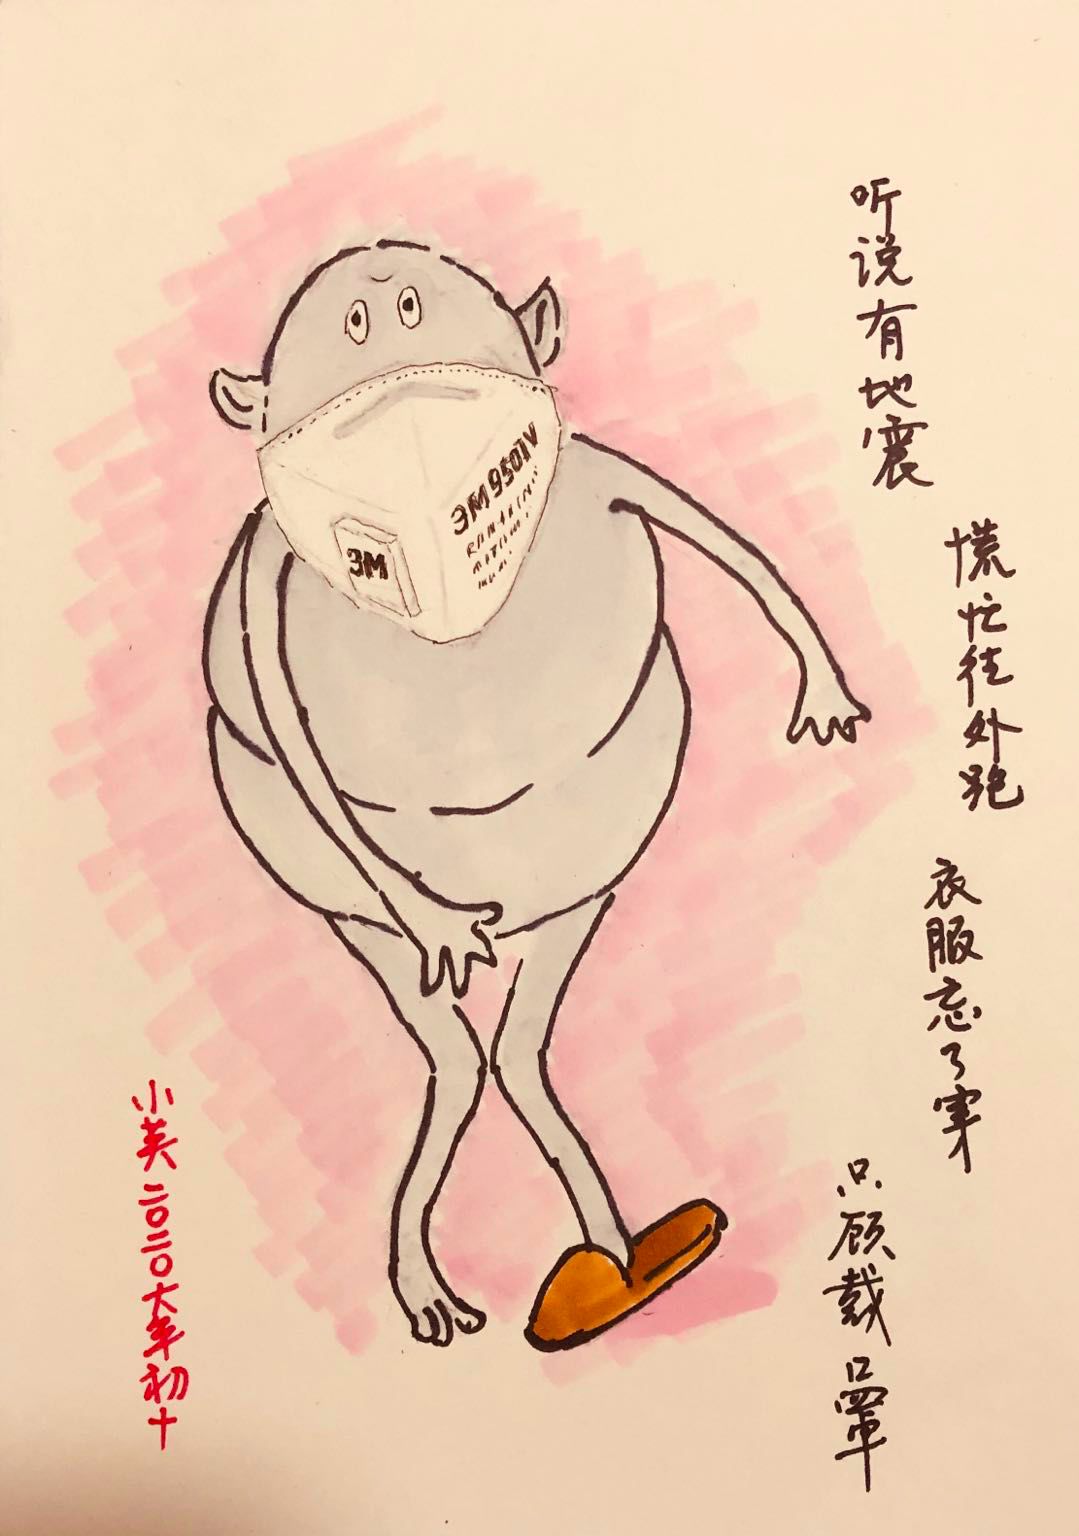 听说有地震
慌忙往外跑
衣服忘了穿
只顾戴口罩
3M 9501V
3M
小英二〇二〇大年初十